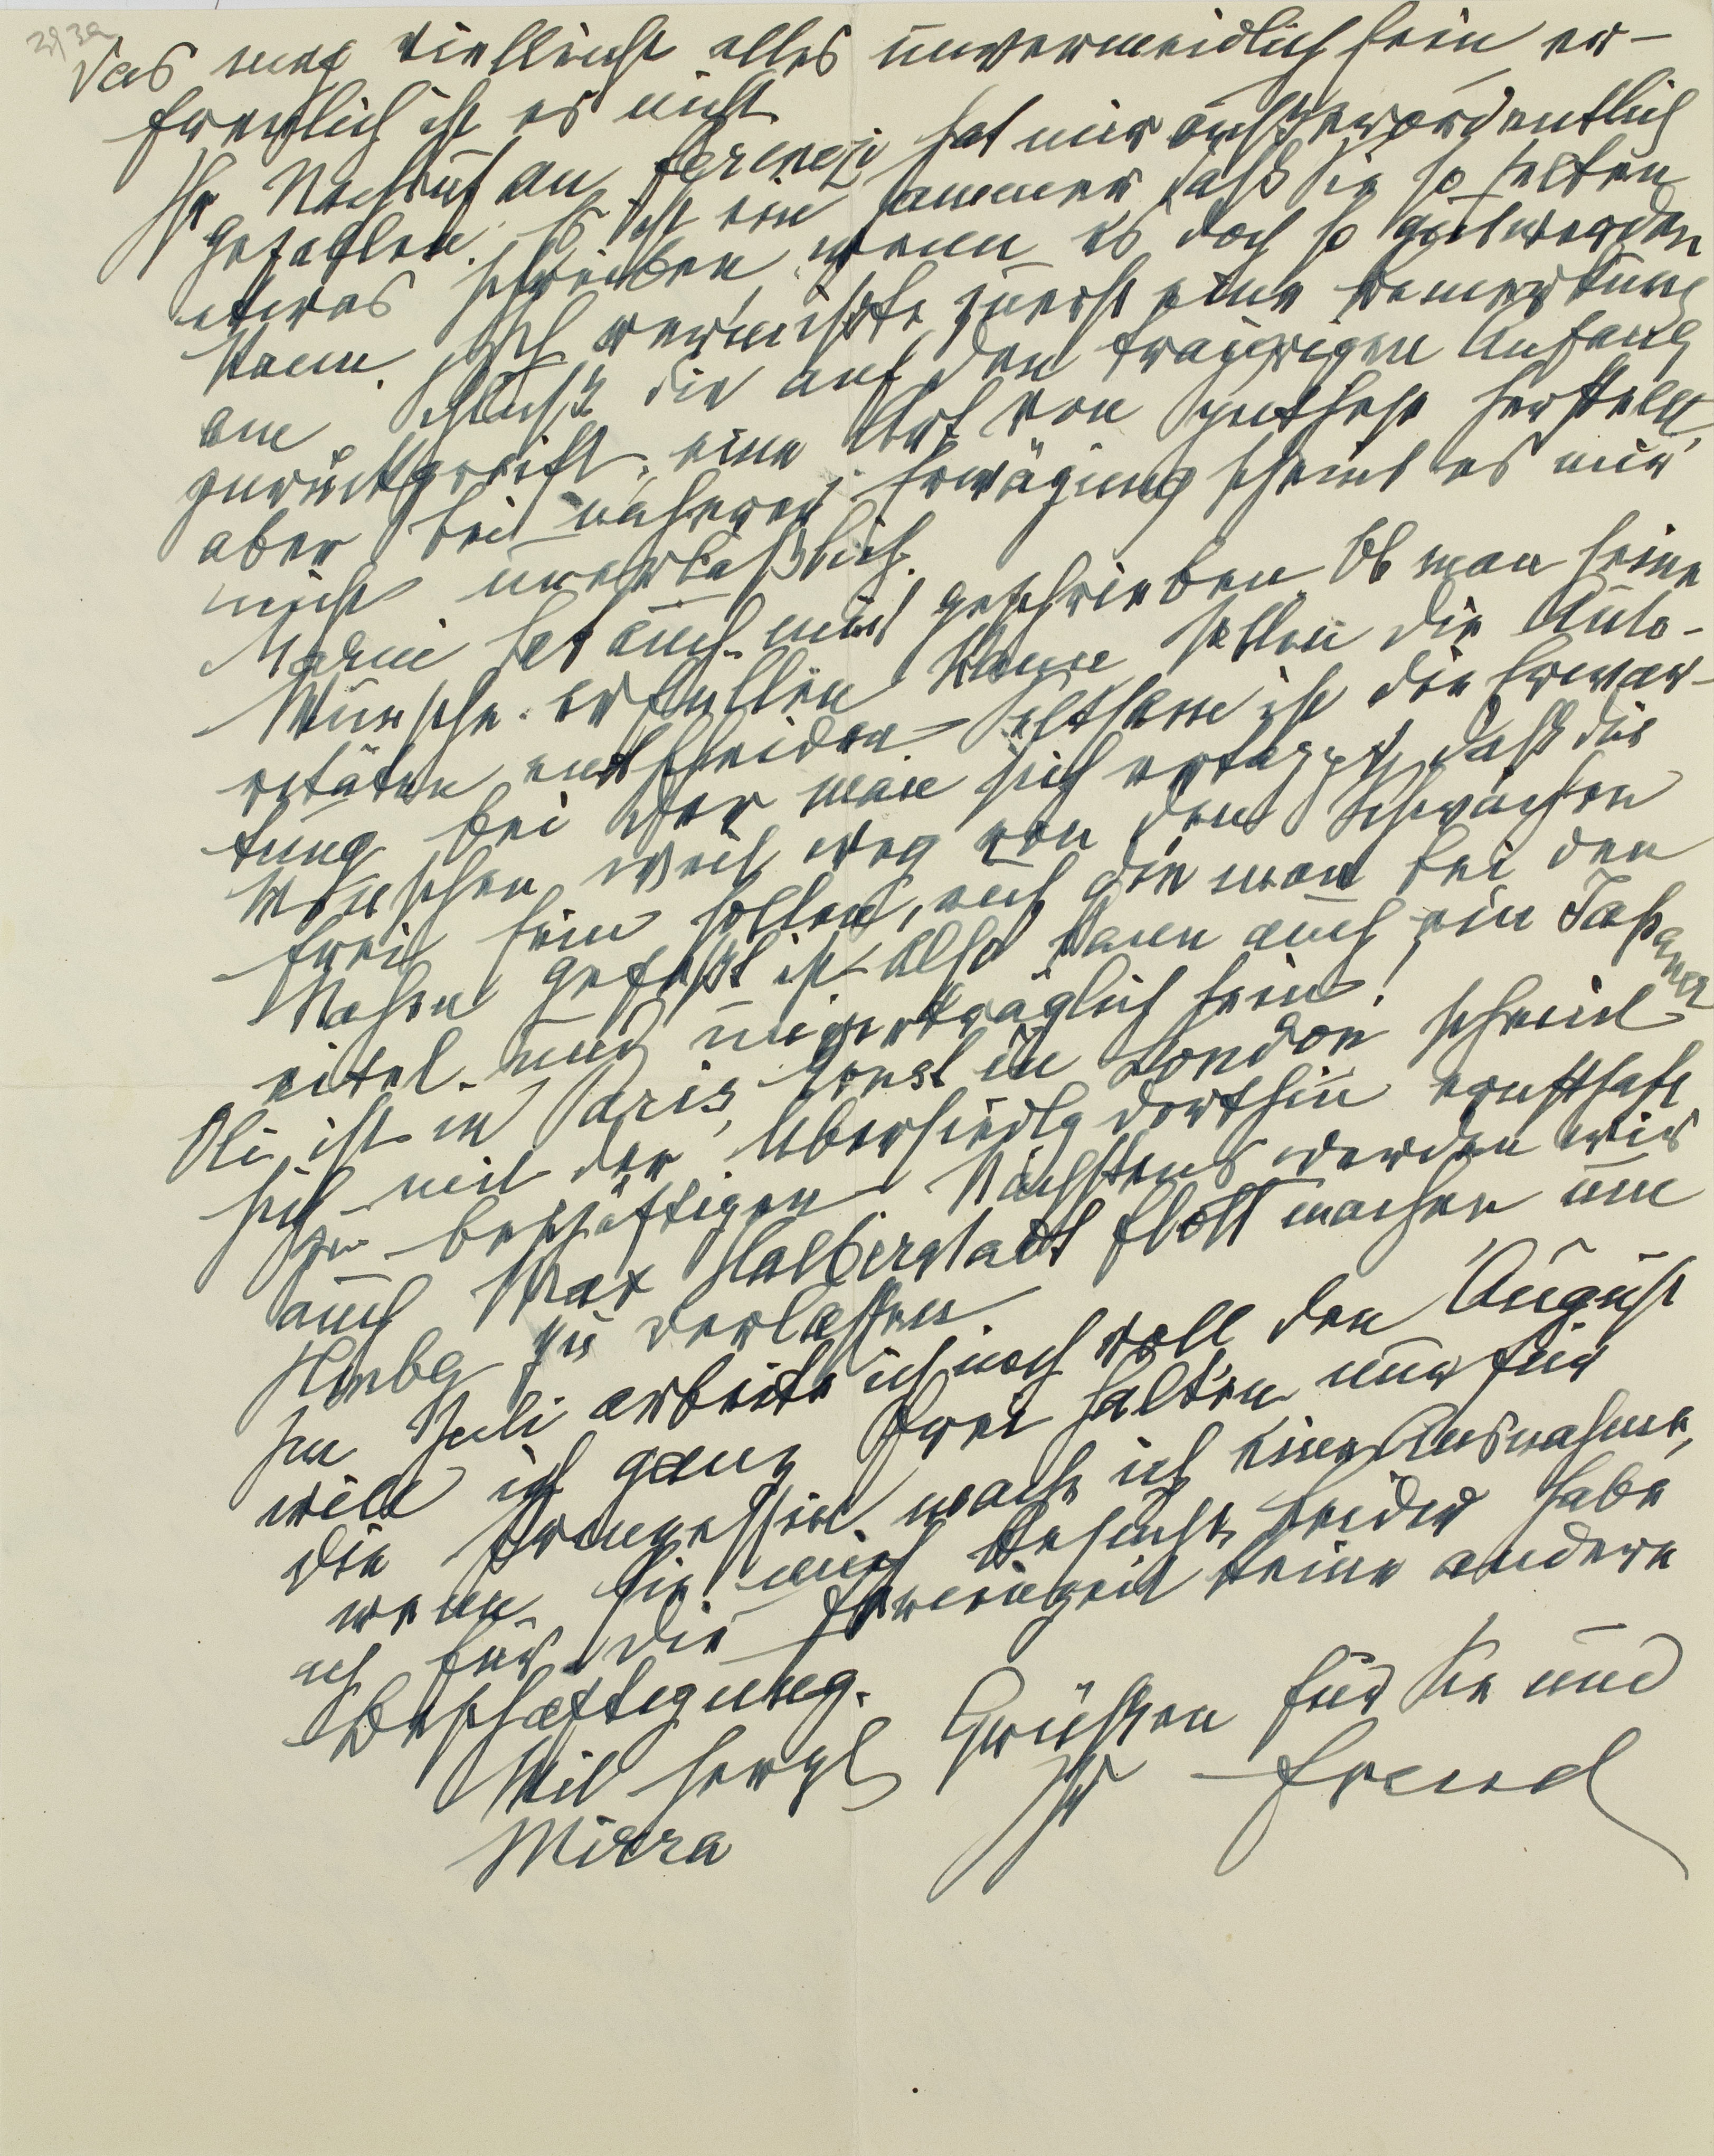 Das mag vielleicht alles unvermeidlich sein er-
freulich ist es nicht.
Ihr Nachruf an Ferenczi hat mir außerordentlich
gefallen. Es ist ein Jammer daß Sie so selten
etwas schreiben, wenn es doch so gut werden
kann. Ich vermißte zuerst eine Bemerkung
am Schluß die auf den traurigen Anfang
zurückgreift, eine Art von Synthese herstellt,
aber bei näherer Erwägung scheint es mir
nicht unerläßlich.
Marui hat auch mir geschrieben. Ob man seine
Wünsche erfüllen kann sollen die Auto-
ritäten entscheiden. Seltsam ist die Erwar-
tung bei der man sich ertappt, daß die
Menschen weit weg von den Schwächen
frei sein sollen, auf die man bei den
Nahen gefaßt ist. Also kann auch ein Japaner
eitel und unverträglich sein!
Oli ist in Paris, Ernst in London scheint
sich mit der Übersiedlg dorthin ernsthaft
zu beschäftigen. Nächstens werden wir
auch Max Halberstadt flott machen um
Hmbg zu verlassen.
Im Juli arbeite ich noch voll den August
will ich ganz frei halten nur für
die Prinzessin mache ich eine Ausnahme,
wenn sie mich besucht. Leider habe
ich für die Ferienzeit keine andere
Beschäftigung.
Mit herzl Grüßen für Sie und
Mirra
Ihr Freud